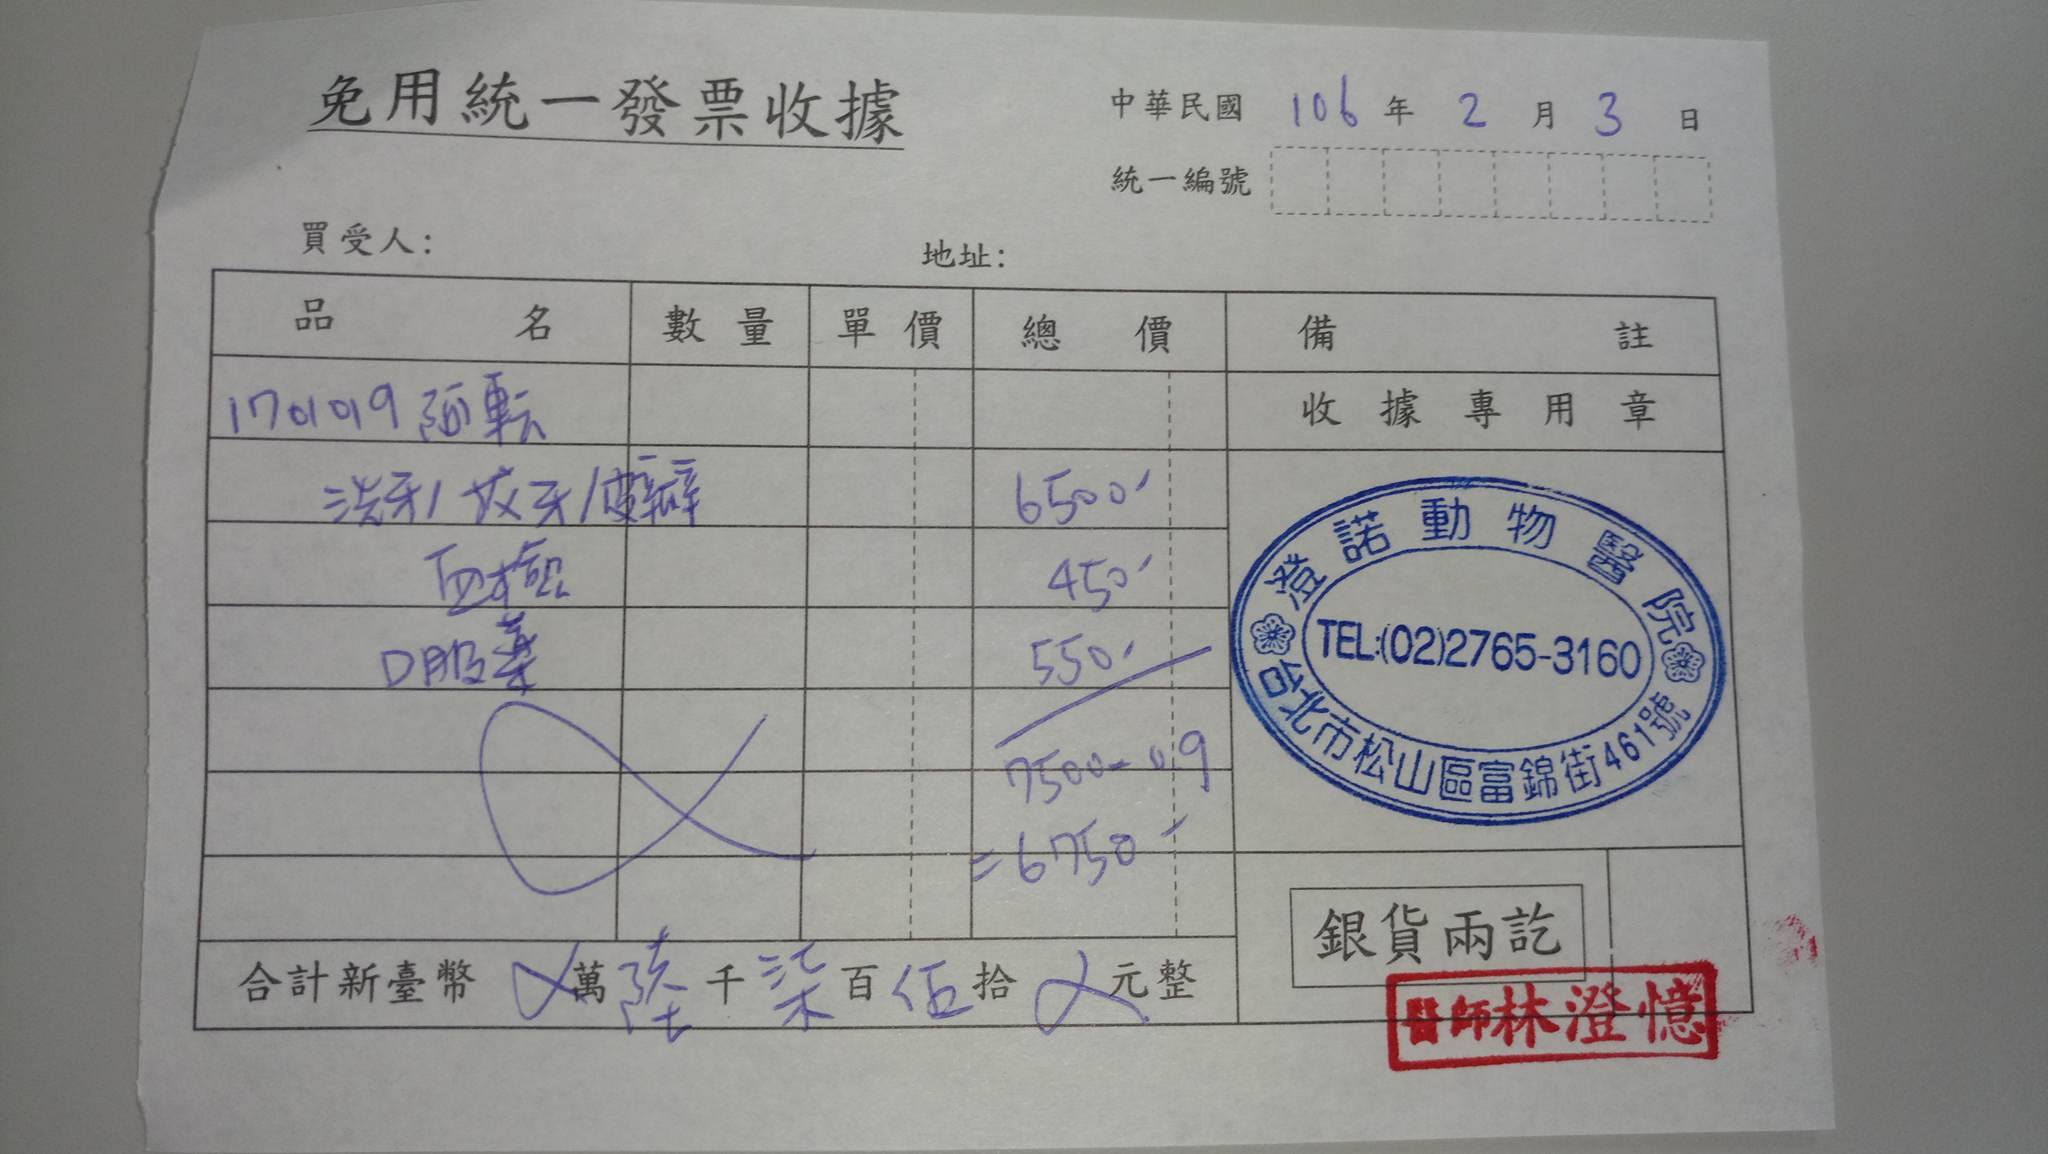 免用統一發票收據
中華民國 106 年 2 月 3 日
統一編號
買受人:
地址:
品名 數量 單價 總價 備註
1701019 阿転
收據專用章
洗牙/拔牙/皮瓣 6500
血檢 450
口服藥 550
7500-0.9
=6750
澄諾動物醫院
TEL:(02)2765-3160
台北市松山區富錦街461號
銀貨兩訖
合計新臺幣 萬 陸 千 柒 百 伍 拾 元整
醫師林澄憶